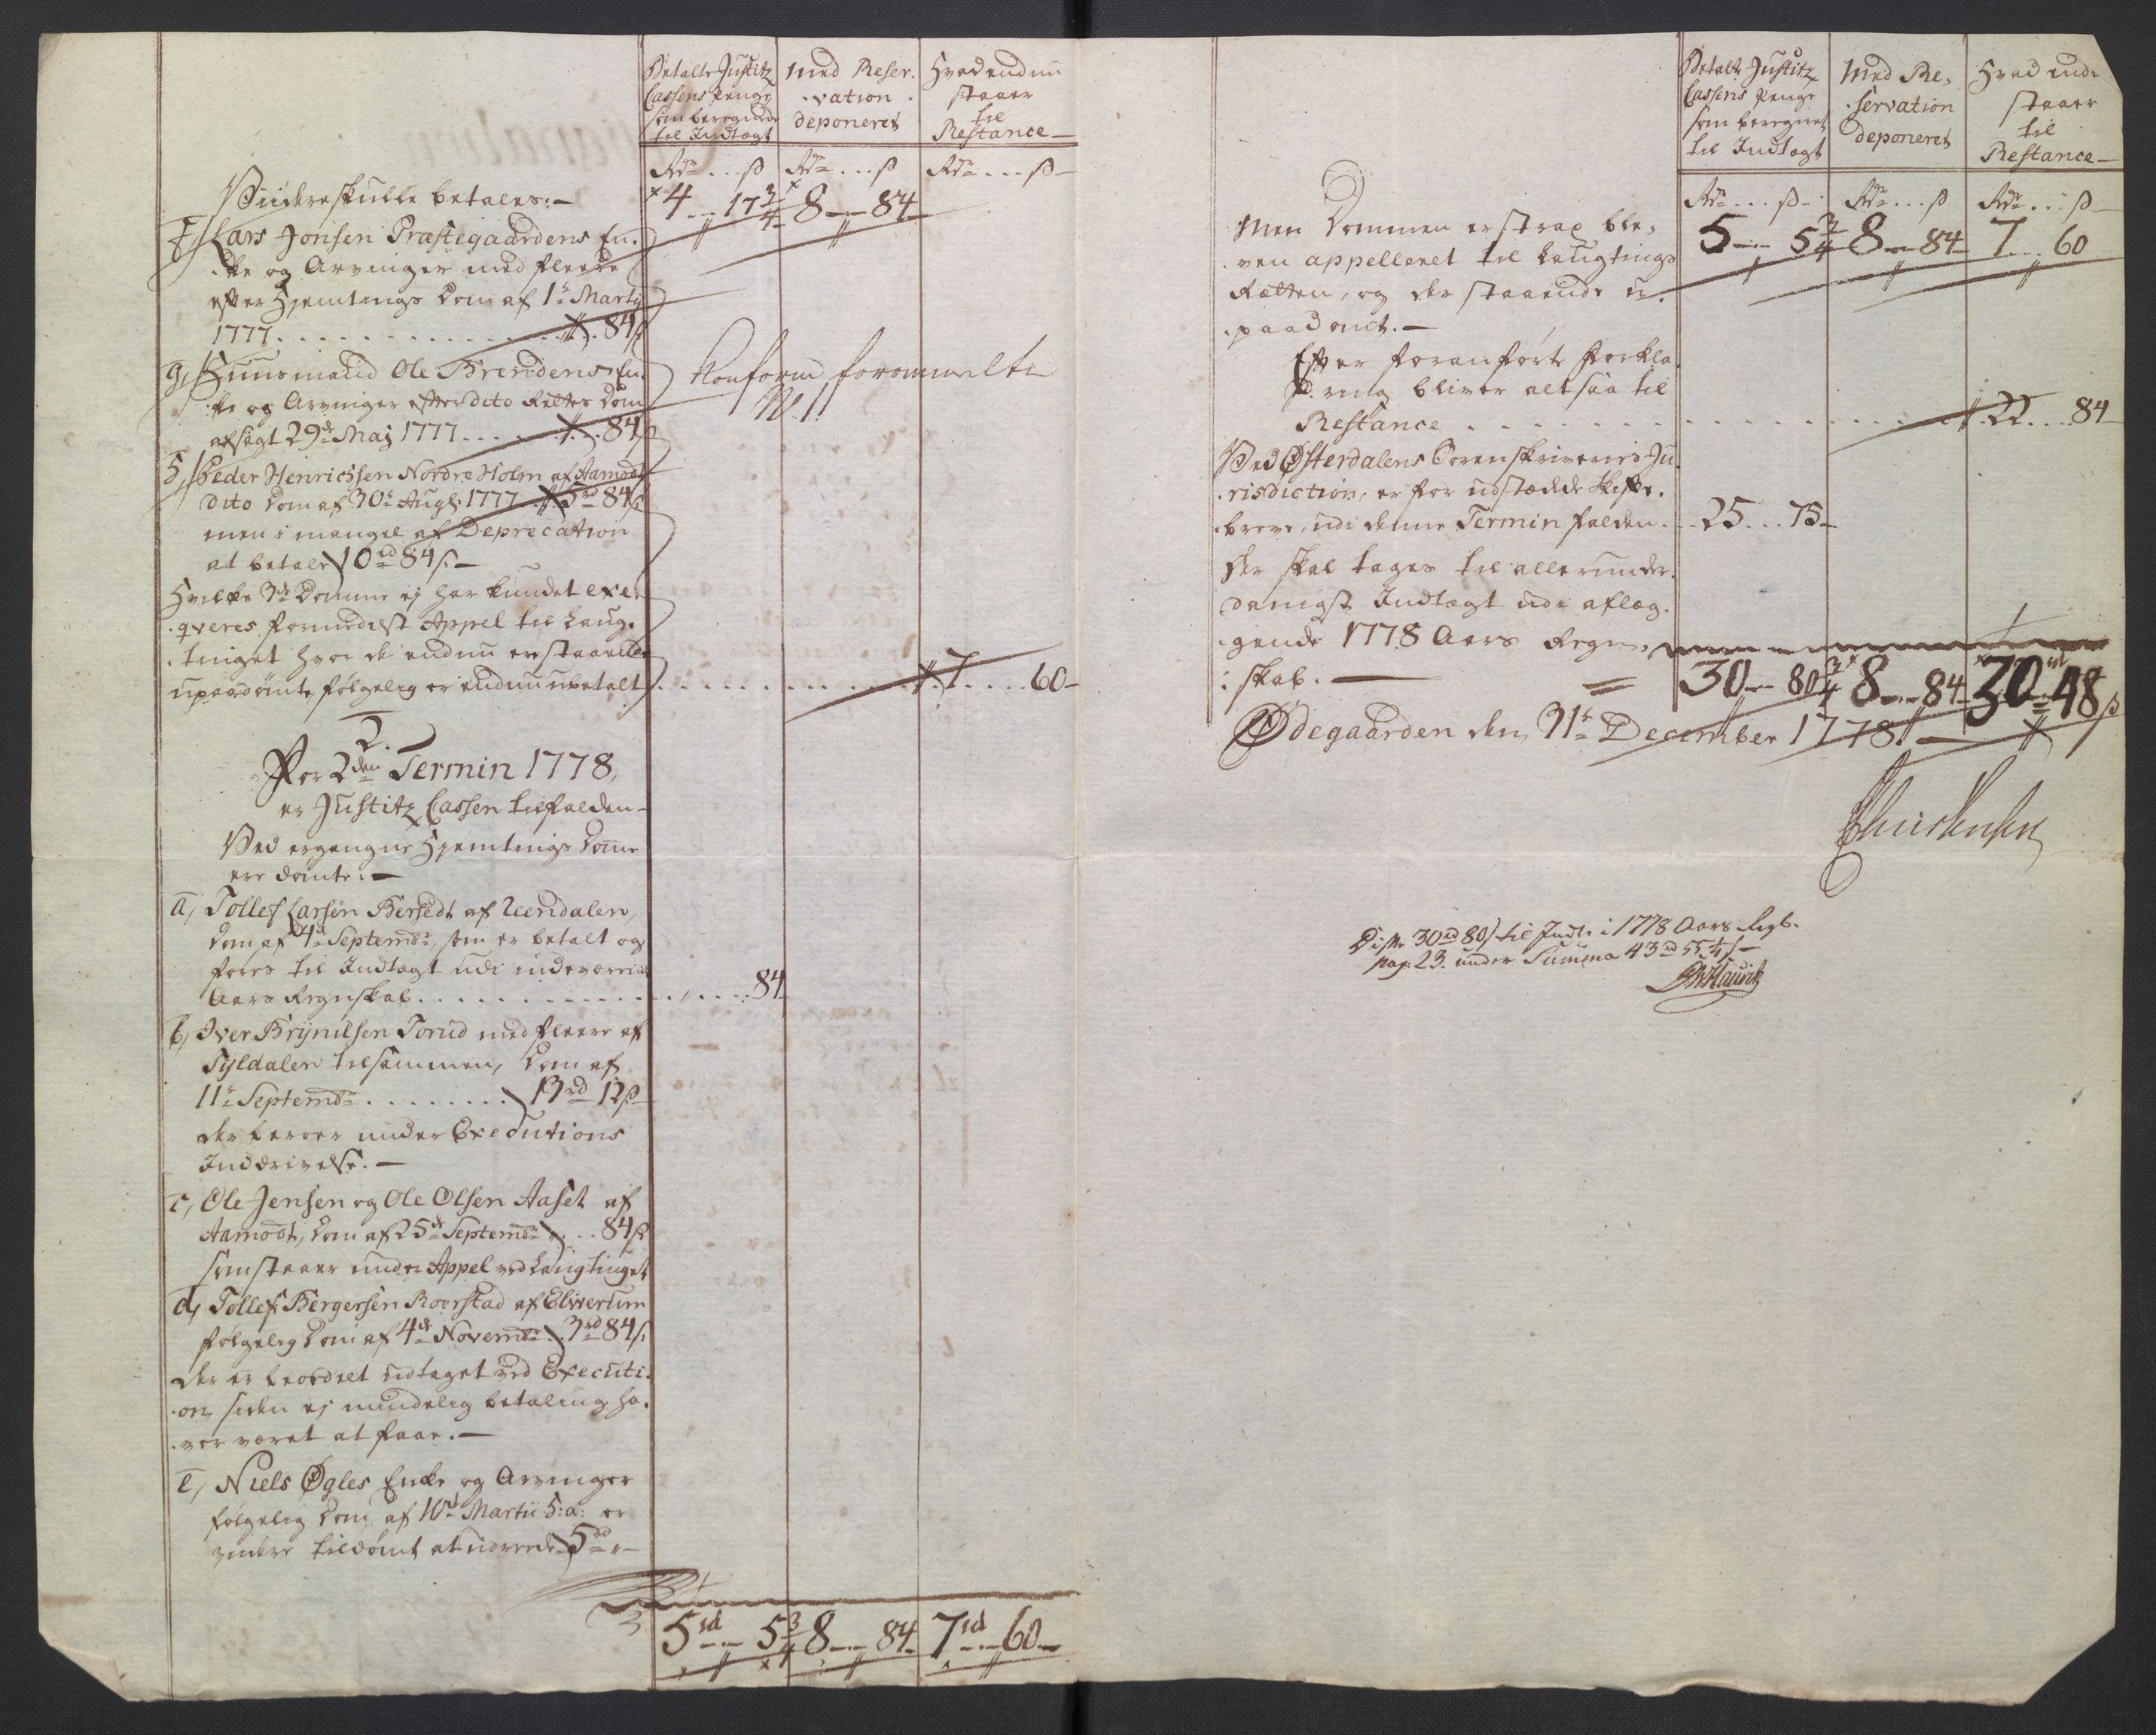 Betalte Justitz
Cassens Penge
som beregnede
til Indtægt
Med Reser-
vation
deponeret
Hvad endnu
staaer
til
Restance
Rdr ... ß Rdr ... ß Rdr ... ß
Viidere skulle betales:
4 17 3/4 8 84
f, Lars Jonsen Præstegaardens En-
ke og Arvinger med fleere
efter Hjemtings Dom af 1te Martij
1777 84 ß
g, Huusmand Ole Brendens En-
ke og Arvinger efter dito Rettes Dom
afsagt 29de Maj 1777 84 ß
Konform formeelte
h, Peder Henrichsen Nordre Holm af Aamodt
dito Dom af 30te Augs. 1777 5rd 84 ß
men i mangel af Deprecation
at betale 10rd 84 ß.
Hvilke 3de Domme ej har kundet exe-
qveres formedelst Appel til Laug-
tinget hvor de endnu er staaende
upaadømte, følgelig er endnu ubetalt 7 60
2.
For 2den Termin 1778,
er Justitz Cassen tilfalden
Ved ergangne Hjemtings Domme
ere dømte:
a, Tollef Larsen Bersedt af Reendalen,
Dom af 4de Septembr, som er betalt og
føres til Indtægt udi indeværende
Aars Regnskab 84
b, Iver Brynilsen Torud med fleere af
Tyldalen tilsammen, Dom af
11te Septembr 13rd 12 ß
der beroer under Executions
Inddrivelse.
c, Ole Jensen og Ole Olsen Aaset af
Aamodt, Dom af 25de Septembr 84 ß
som staaer under Appel ved Laugtinget
d, Tollef Bergersen Roerstad af Elwerum
følgelig Dom af 4de Novembr 3rd 84 ß
der er beordret udtaget ved Executi-
on, siden ej mindelig betaling ha-
ver været at faae.
e, Niels Øgles Enke og Arvinger
følgelig Dom af 10de Martii h: a: er
videre tildømt at udreede 5rd "
5rd 5 3/4 8 84 7rd 60
Betalte Justitz
Cassens Penge
som beregnet
til Indtægt
Med Re-
servation
deponeret
Hvad endnu
staaer
til
Restance
Rdr ... ß Rdr ... ß Rdr ... ß
5 5 3/4 8 84 7 60
Men Dommen er strax ble-
ven appelleret til Laugtings
Retten, og der staaende u-
paadømt.
Efter foranførte Forkla-
ring bliver altsaa til
Restance 22 84
Ved Østerdalens Sorenskriveries Ju-
risdiction, er for udstædde Skifte-
breve, udi denne Termin falden 25 75
der skal tages til allerunder-
danigst Indtægt udi aflæg-
gende 1778 Aars Regn-
skab.
30 80 3/4 8 84 30rd 48 ß
Ødegaarden den 31te December 1778.
Disse 30rd 80 ß til Indt. i 1778 Aars Regb.
pag: 23. under Summa 43rd 55 1/4 ß